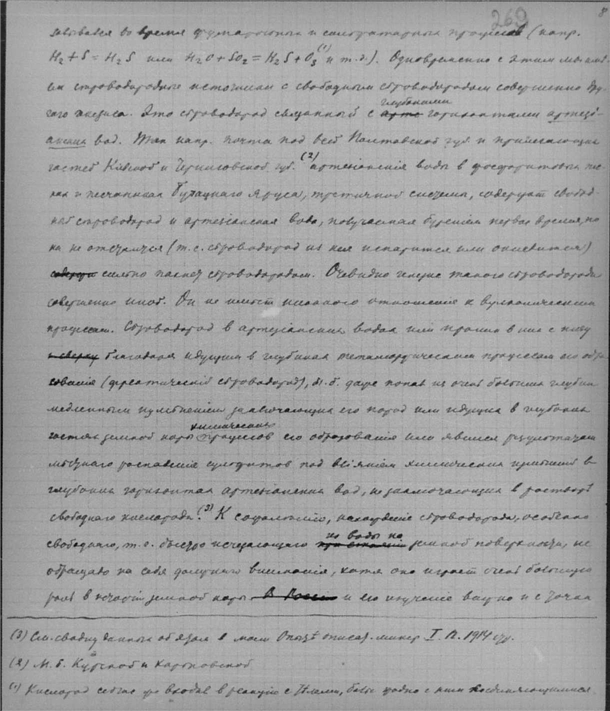 269
8
во время фумарольных и сольфатарных процессов (напр.
H₂+S=H₂S или H₂O+SO₂=H₂S+O₃(1) и т.д.). Одновременно с этим мы
сероводородные источники с свободным сероводородом совершенно дру-
гого генезиса. Это сероводород связанный с глубокими горизонтами артези-
анских вод. Так напр. почти под всей Полтавской губ. и прилегающих
частей Киевской и Черниговской губ.(2) артезианские воды в фосфоритовых пес-
ках и песчаниках Бучацкого яруса, третичной системы, содержат свобод-
ный сероводород и артезианская вода, полученная бурением первое время, по-
ка не отстоится (т.е. сероводород из нея испарится или окислится)
сильно пахнет сероводородом. Очевидно генезис такого сероводорода
совершенно иной. Он не имеет никакого отношения к вулканическим
процессам. Сероводород в артезианских водах или проник в них с низу
благодаря идущим в глубинах метаморфическим процессам его обра-
зования (фреатический сероводород), м.б. даже попав из очень больших глубин
медленным изменением заключающих его пород или идущих в глубоких
частях земной коры химических процессов его образования или явился результатом
местного распадения сульфатов под влиянием химических процессов в
глубоких горизонтах артезианских вод, не заключающих в растворе
свободного кислорода.(3) К сожалению, нахождение сероводорода, особенно
свободного, т.е. быстро исчезающего из воды на земной поверхности, не
обращало на себя должного внимания, хотя оно играет очень большую
роль в земной коры и его изучение важно и с точки
(3) См. сводку данных об этом в моем Опыт описат. минер. I. П. 1914
(2) М.б. Курской и Харьковской
(1) Кислород сейчас же входит в реакцию с телами, с ним соединяющимися.